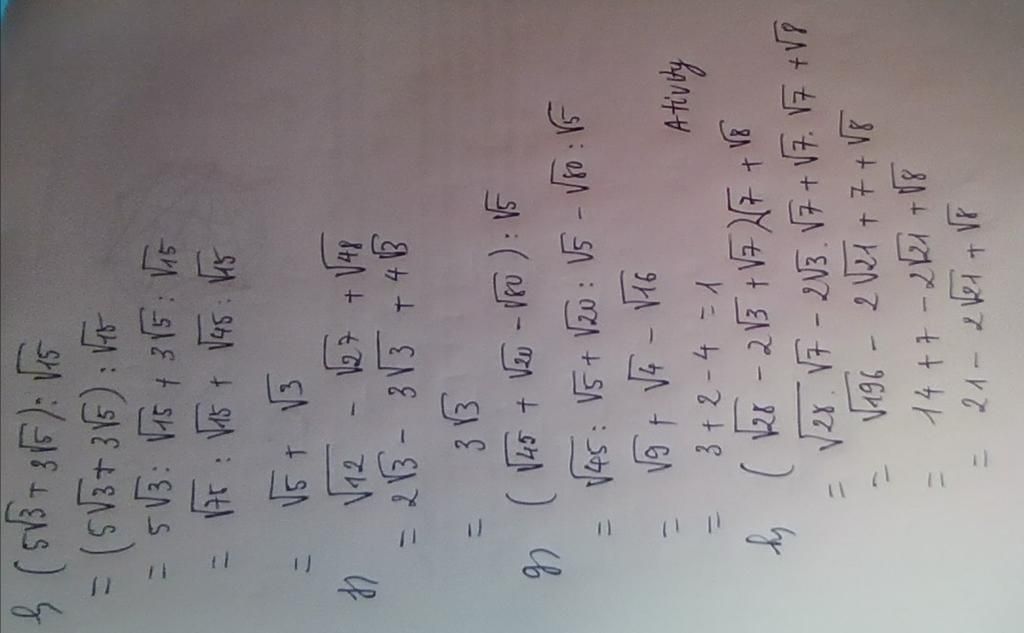 (5√3 + 3√5) : √15
= (5√3 + 3√5) : √15
= 5√3 : √15 + 3√5 : √15
= √75 : √15 + √45 : √15
= √5 + √3
√12 - √27 + √48
= 2√3 - 3√3 + 4√3
= 3√3
g) (√45 + √20 - √80) : √5
= √45 : √5 + √20 : √5 - √80 : √5
= √9 + √4 - √16
= 3 + 2 - 4 = 1
Ativity
h) (√28 - 2√3 + √7)√7 + √8
= √28 . √7 - 2√3 . √7 + √7 . √7 + √8
= √196 - 2√21 + 7 + √8
= 14 + 7 - 2√21 + √8
= 21 - 2√21 + √8